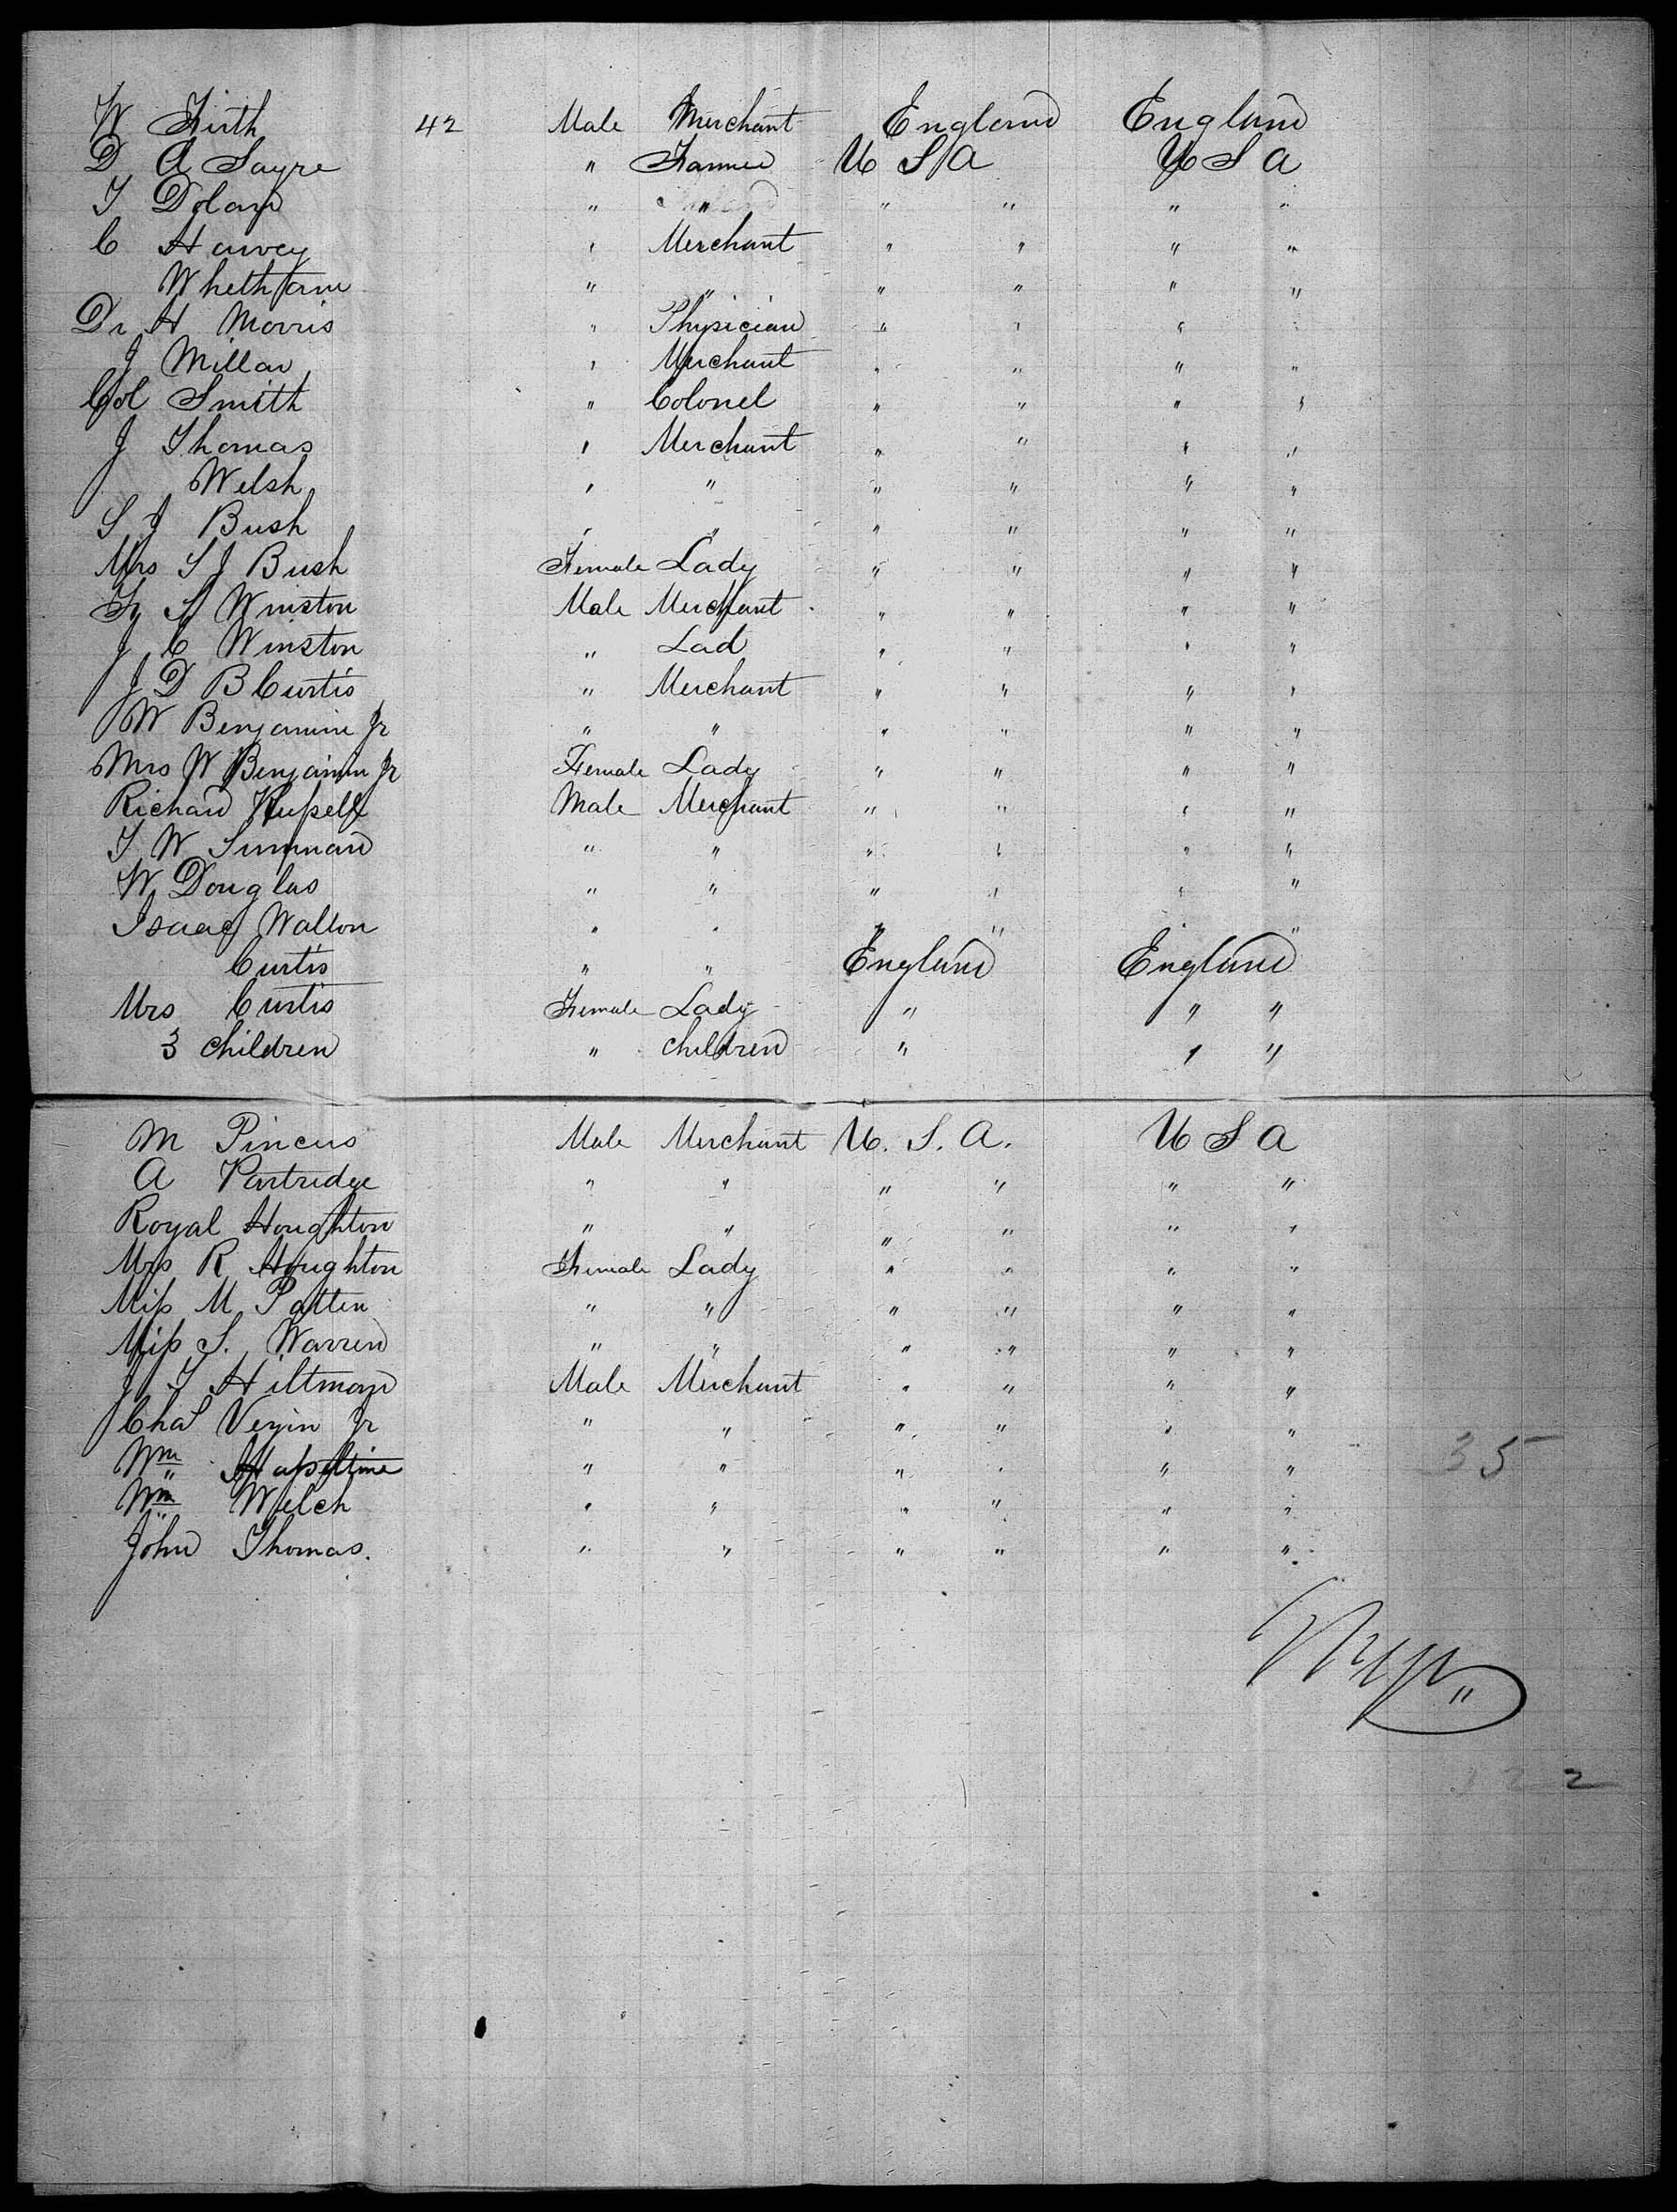 W Firth 42 Male Merchant England England
D A Sayre " Farmer U S A U S A
T Dolan " " " " " "
C Harvey " Merchant " " " "
Whetham " " " " " "
Dr H Morris " Physician " " " "
J Millar " Merchant " " " "
Col Smith " Colonel " " " "
J Thomas " Merchant " " " "
Welsh " " " " " "
S J Bush " " " " " "
Mrs S J Bush Female Lady " " " "
F S Winston Male Merchant " " " "
J C Winston " Lad " " " "
J D B Curtis " Merchant " " " "
W Benjamine Jr " " " " " "
Mrs W Benjamin Jr Female Lady " " " "
Richard Russell Male Merchant " " " "
T W " " " " " "
W Douglas " " " " " "
Isaac Walton " " " " " "
Curtis " " England England
Mrs Curtis Female Lady " " "
3 children " children " " "
M Pincus Male Merchant U. S. A. U S A
A Partridge " " " " " "
Royal Houghton " " " " " "
Mrs R Houghton Female Lady " " " "
Miss M Patten " " " " " "
Miss S. Warren " " " " " "
J T Hiltman Male Merchant " " " "
Chas Vezin Jr " " " " " "
Wm Haseltine " " " " " " 35
Wm Welch " " " " " "
John Thomas. " " " " " "
122